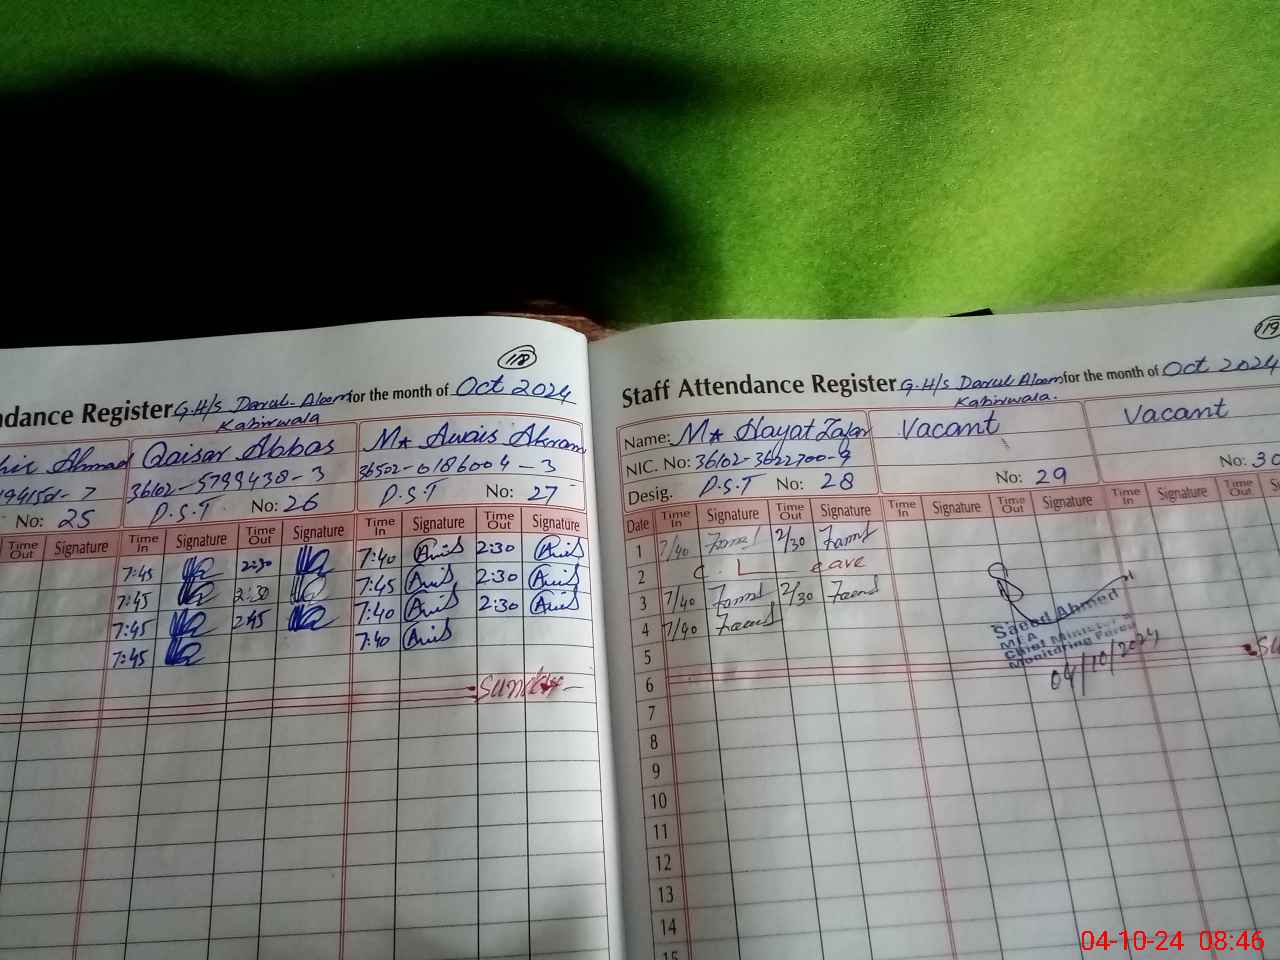 118
ndance Register G.H/S Darul-Aloom for the month of Oct 2024
Kabirwala
hir Ahmad Qaisar Abbas M* Awais Akram
94150-7 36102-5799438-3 36502-0186004-3
No: 25 P.S.T No: 26 P.S.T No: 27
Time Out Signature Time In Signature Time Out Signature Time In Signature Time Out Signature
7:45 2:30 7:40 Awais 2:30 Awais
7:45 2:30 7:45 Awais 2:30 Awais
7:45 2:45 7:40 Awais 2:30 Awais
7:45 7:40 Awais
Sunday
119
Staff Attendance Register G.H/S Darul Aloom for the month of Oct 2024
Kabirwala.
Name: M* Hayat Zafar Vacant Vacant
NIC. No: 36102-3622700-9
Desig. P.S.T No: 28 No: 29 No: 30
Date Time In Signature Time Out Signature Time In Signature Time Out Signature Time In Signature Time Out
1 7/40 2/30
2 C. Leave
3 7/40 2/30
4 7/40
5
6
7
8
9
10
11
12
13
14
15
Saeed Ahmed
MEA
Chief Minister's
Monitoring Force
04/10/2024
04-10-24 08:46